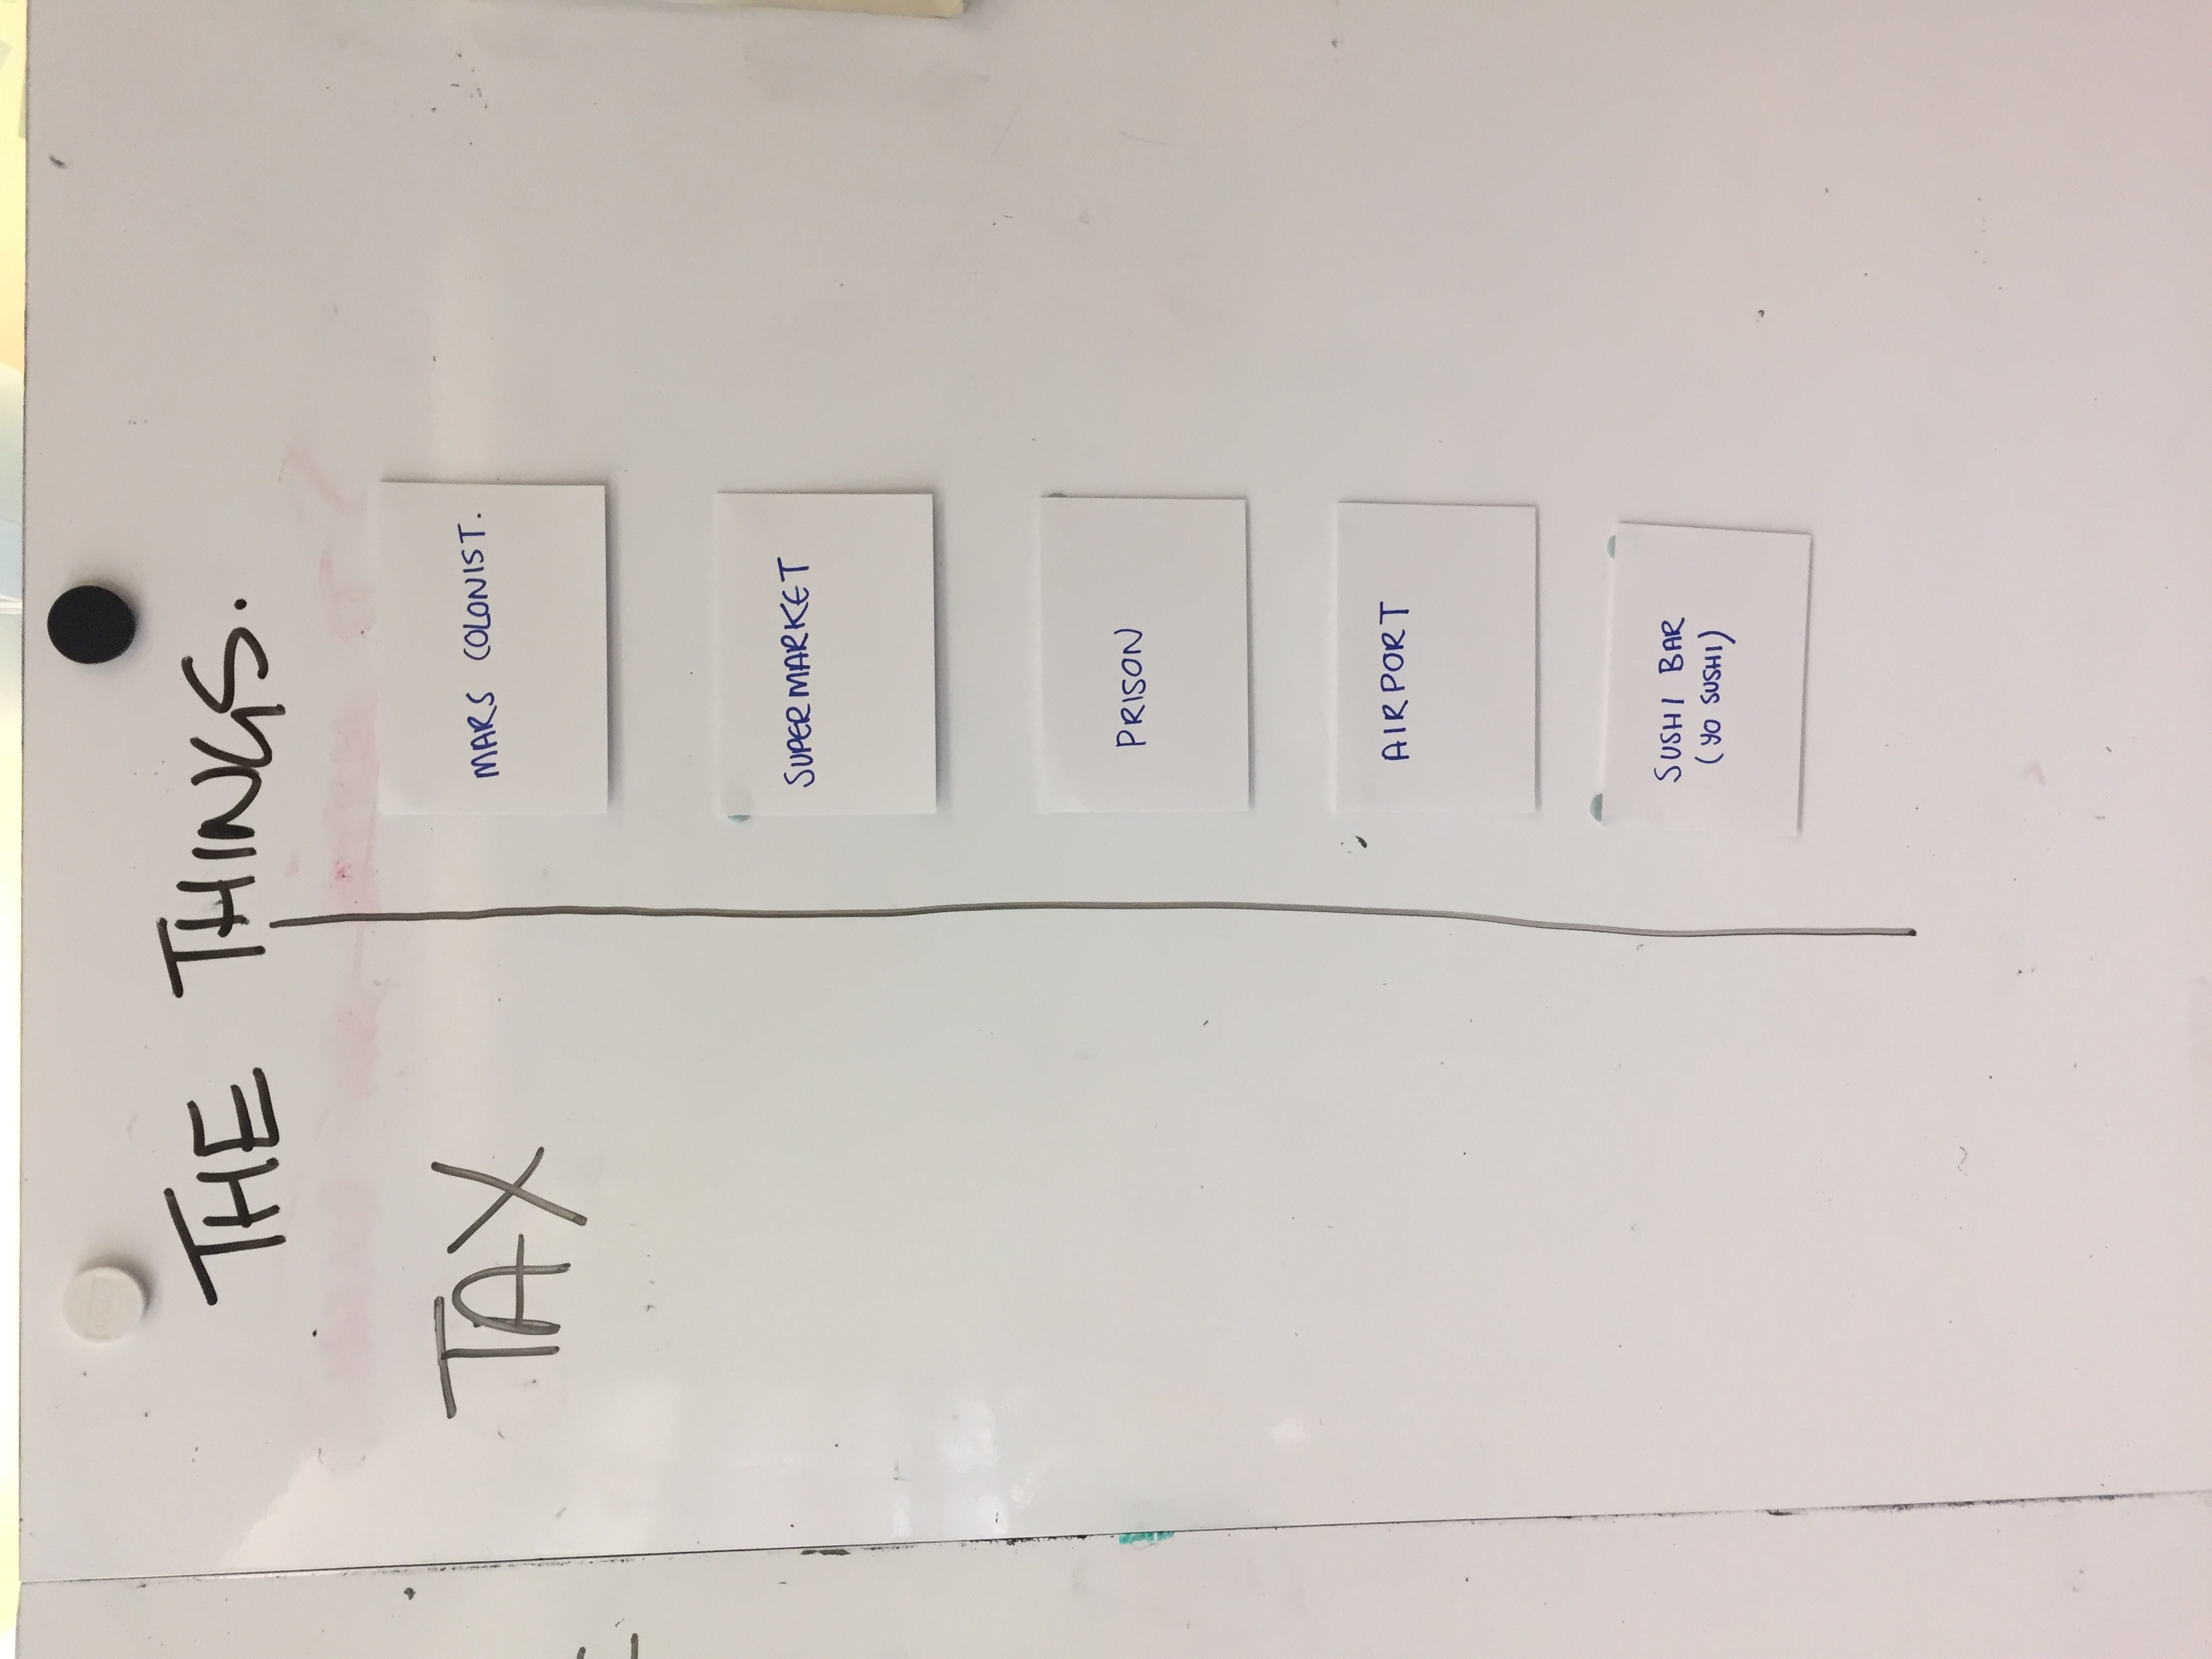 THE THINGS.
TAX
MARS COLONIST.
SUPERMARKET
PRISON
AIRPORT
SUSHI BAR
(YO SUSHI)